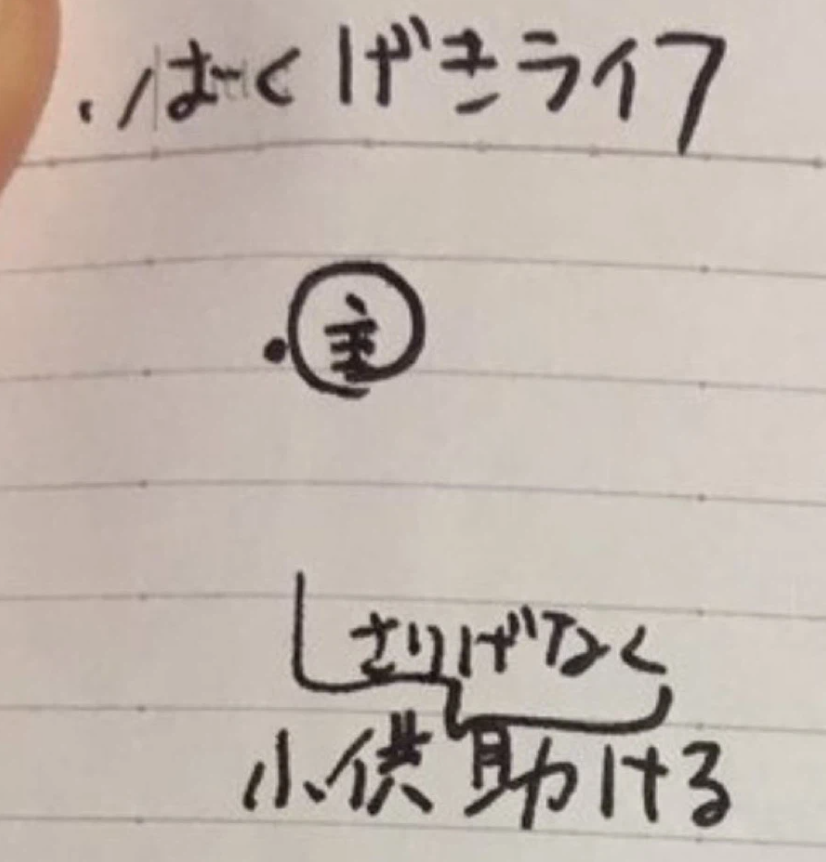 ・はくげきライフ
・主
さりげなく
小供助ける